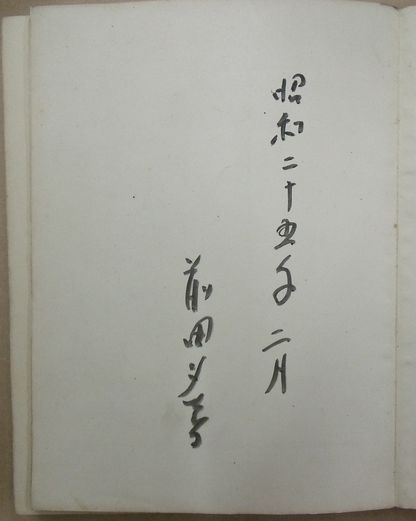 昭和二十五年 二月
前田夕暮